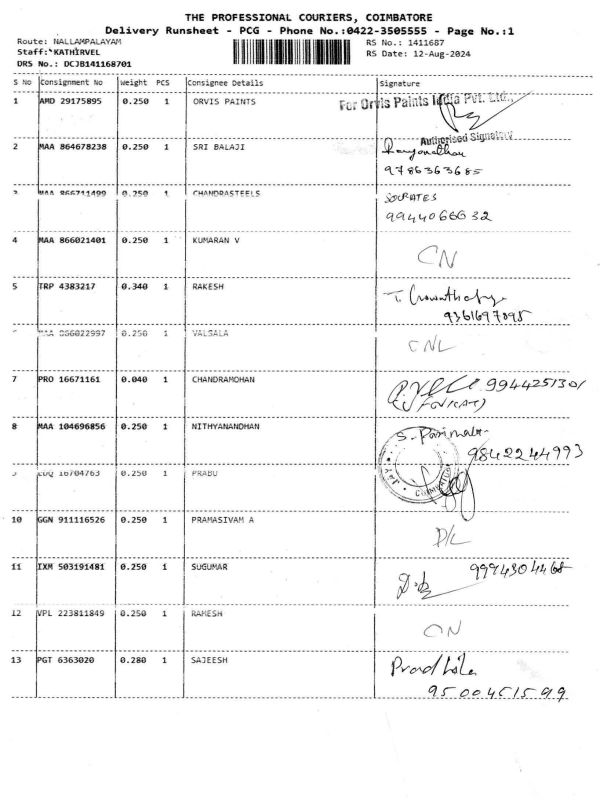 THE PROFESSIONAL COURIERS, COIMBATORE
Delivery Runsheet - PCG - Phone No.:0422-3505555 - Page No.:1
Route: NALLAMPALAYAM RS No.: 1411687
Staff: KATHIRVEL RS Date: 12-Aug-2024
DRS No.: DCJB141168701
S No Consignment No Weight PCS Consignee Details Signature
1 AMD 29175895 0.250 1 ORVIS PAINTS For Orvis Paints India Pvt. Ltd.,
Authorised Signatory
2 MAA 864678238 0.250 1 SRI BALAJI
9786363685
3 MAA 866711499 0.250 1 CHANDRASTEELS SOCRATES
9944066632
4 MAA 866021401 0.250 1 KUMARAN V CN
5 TRP 4383217 0.340 1 RAKESH T.
9361697095
MAA 866022997 0.250 1 VALSALA CNL
7 PRO 16671161 0.040 1 CHANDRAMOHAN 9944251301
8 MAA 104696856 0.250 1 NITHYANANDHAN S. Parimala
9842244993
16704763 0.250 1 PRABU
10 GGN 911116526 0.250 1 PRAMASIVAM A D/L
11 IXM 503191481 0.250 1 SUGUMAR 9994304468
12 VPL 223811849 0.250 1 RAMESH CN
13 PGT 6363020 0.280 1 SAJEESH
9500451599